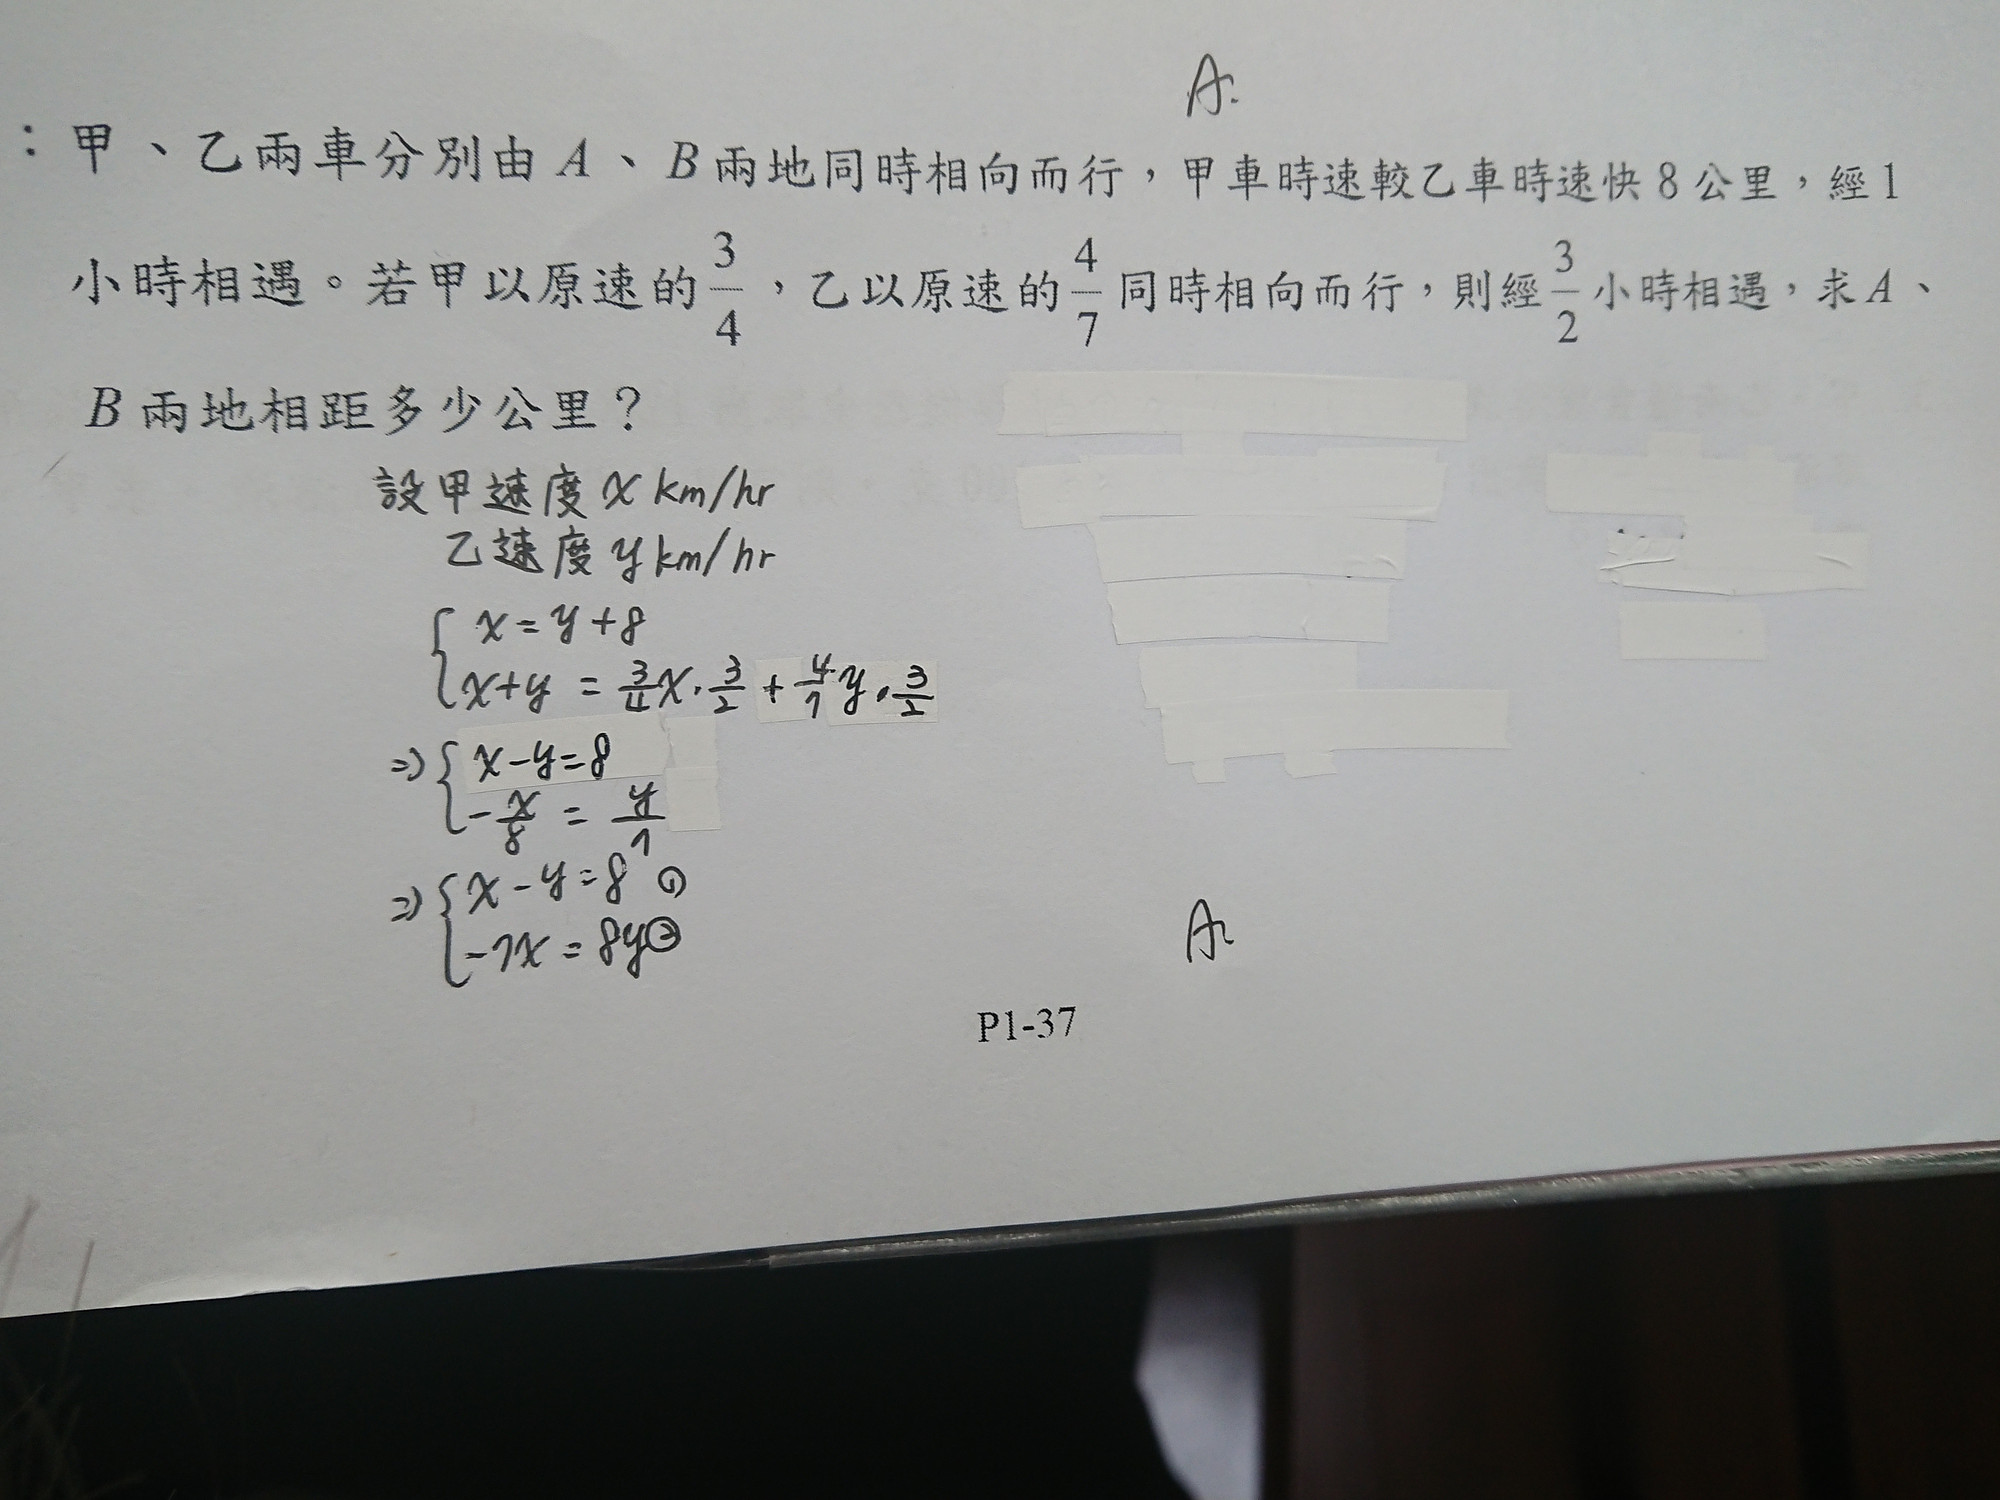 A:
：甲、乙兩車分別由 A、B 兩地同時相向而行，甲車時速較乙車時速快 8 公里，經 1
小時相遇。若甲以原速的 3/4，乙以原速的 4/7 同時相向而行，則經 3/2 小時相遇，求 A、
B 兩地相距多少公里？
設甲速度 x km/hr
乙速度 y km/hr
{ x = y + 8
x + y = 3/4 x · 3/2 + 4/7 y · 3/2
⇒ { x - y = 8
- x/8 = y/7
⇒ { x - y = 8 ①
-7x = 8y ②
A:
P1-37